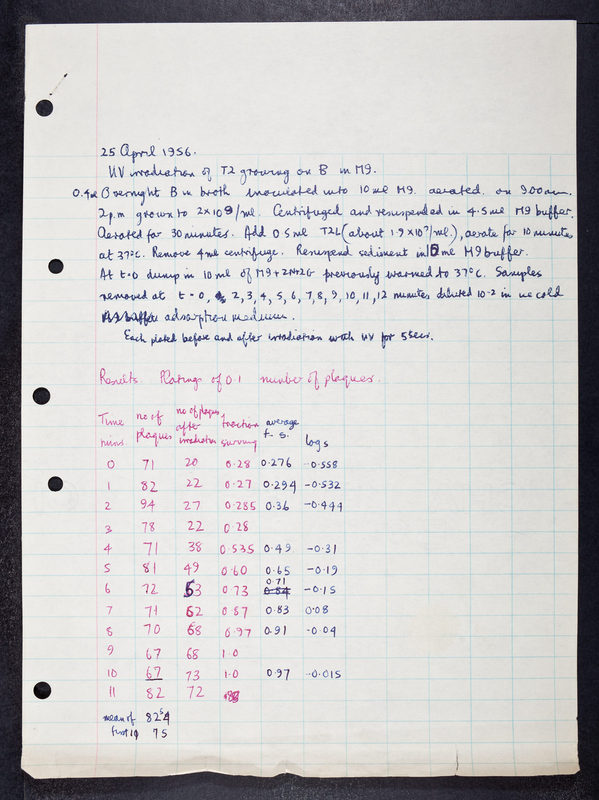 25 April 1956.
UV irradiation of T2 growing on B in M9.
0.4 ml Overnight B in broth inoculated into 10 ml M9. aerated. on 9.00 a.m.
2 p.m grown to 2×10⁸/ml. Centrifuged and resuspended in 4.5 ml M9 buffer.
Aerated for 30 minutes. Add 0.5 ml T2L (about 1.9×10⁷/ml.), aerate for 10 minutes
at 37°C. Remove 4 ml centrifuge. Resuspend sediment in 10 ml M9 buffer.
At t=0 dump in 10 ml of M9+2N+2G previously warmed to 37°C. Samples
removed at t=0, 2, 3, 4, 5, 6, 7, 8, 9, 10, 11, 12 minutes diluted 10-2 in ice cold
M9 buffer adsorption medium.
Each plated before and after irradiation with UV for 5 secs.
Results Plating of 0.1 number of plaques.
Time mins no of plaques no of plaques after irradiation fraction surviving average f. s. logs
0 71 20 0.28 0.276 -0.558
1 82 22 0.27 0.294 -0.532
2 94 27 0.285 0.36 -0.444
3 78 22 0.28
4 71 38 0.535 0.49 -0.31
5 81 49 0.60 0.65 -0.19
6 72 53 0.73 0.84 0.71 -0.15
7 71 62 0.87 0.83 0.08
8 70 68 0.97 0.91 -0.04
9 67 68 1.0
10 67 73 1.0 0.97 -0.015
11 82 72 .88
mean of 824
first 10 75